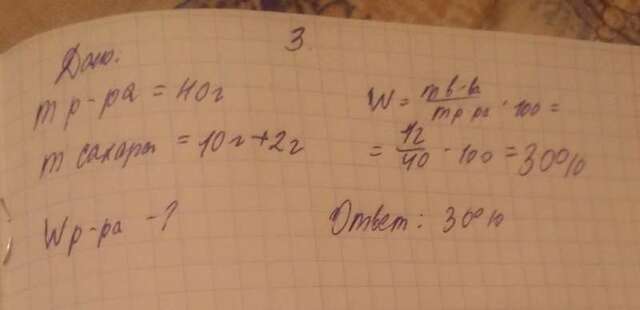 3.
Дано:
m р-ра = 40г
m сахара = 10г+2г
Wр-ра -?
W = m в-ва / m р-ра · 100 =
= 12/40 · 100 = 30%
Ответ: 30%